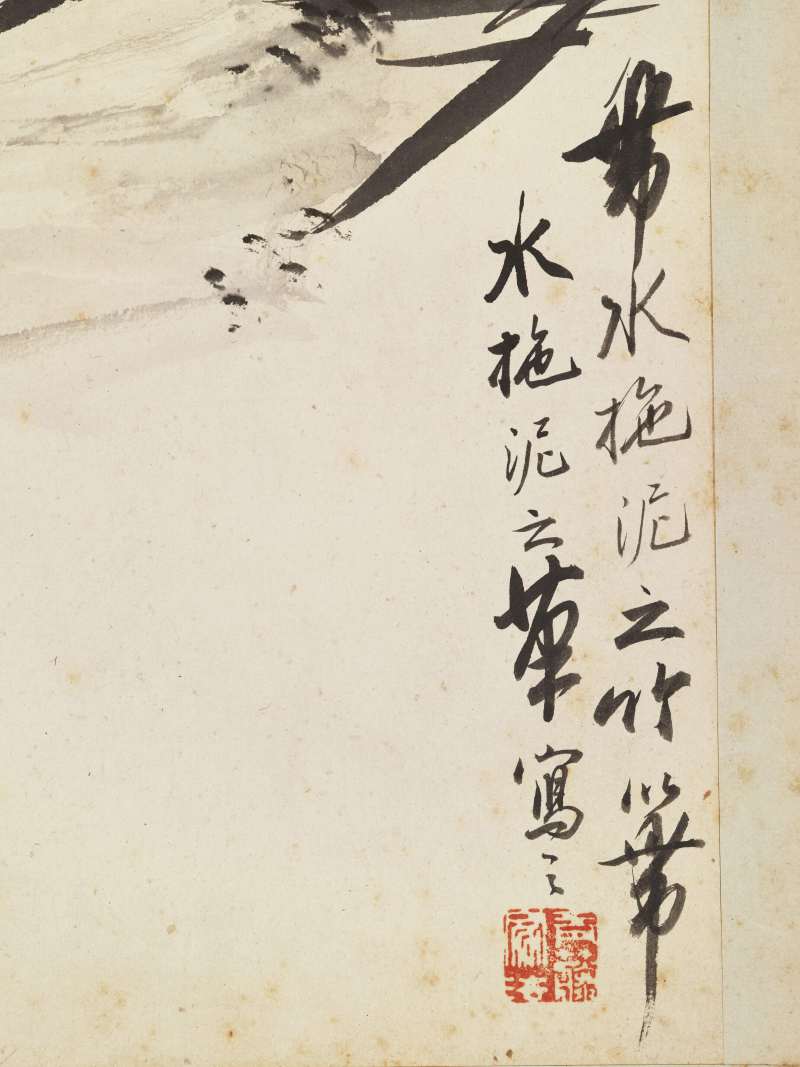 帶水拖泥之竹以帶
水拖泥之筆寫之